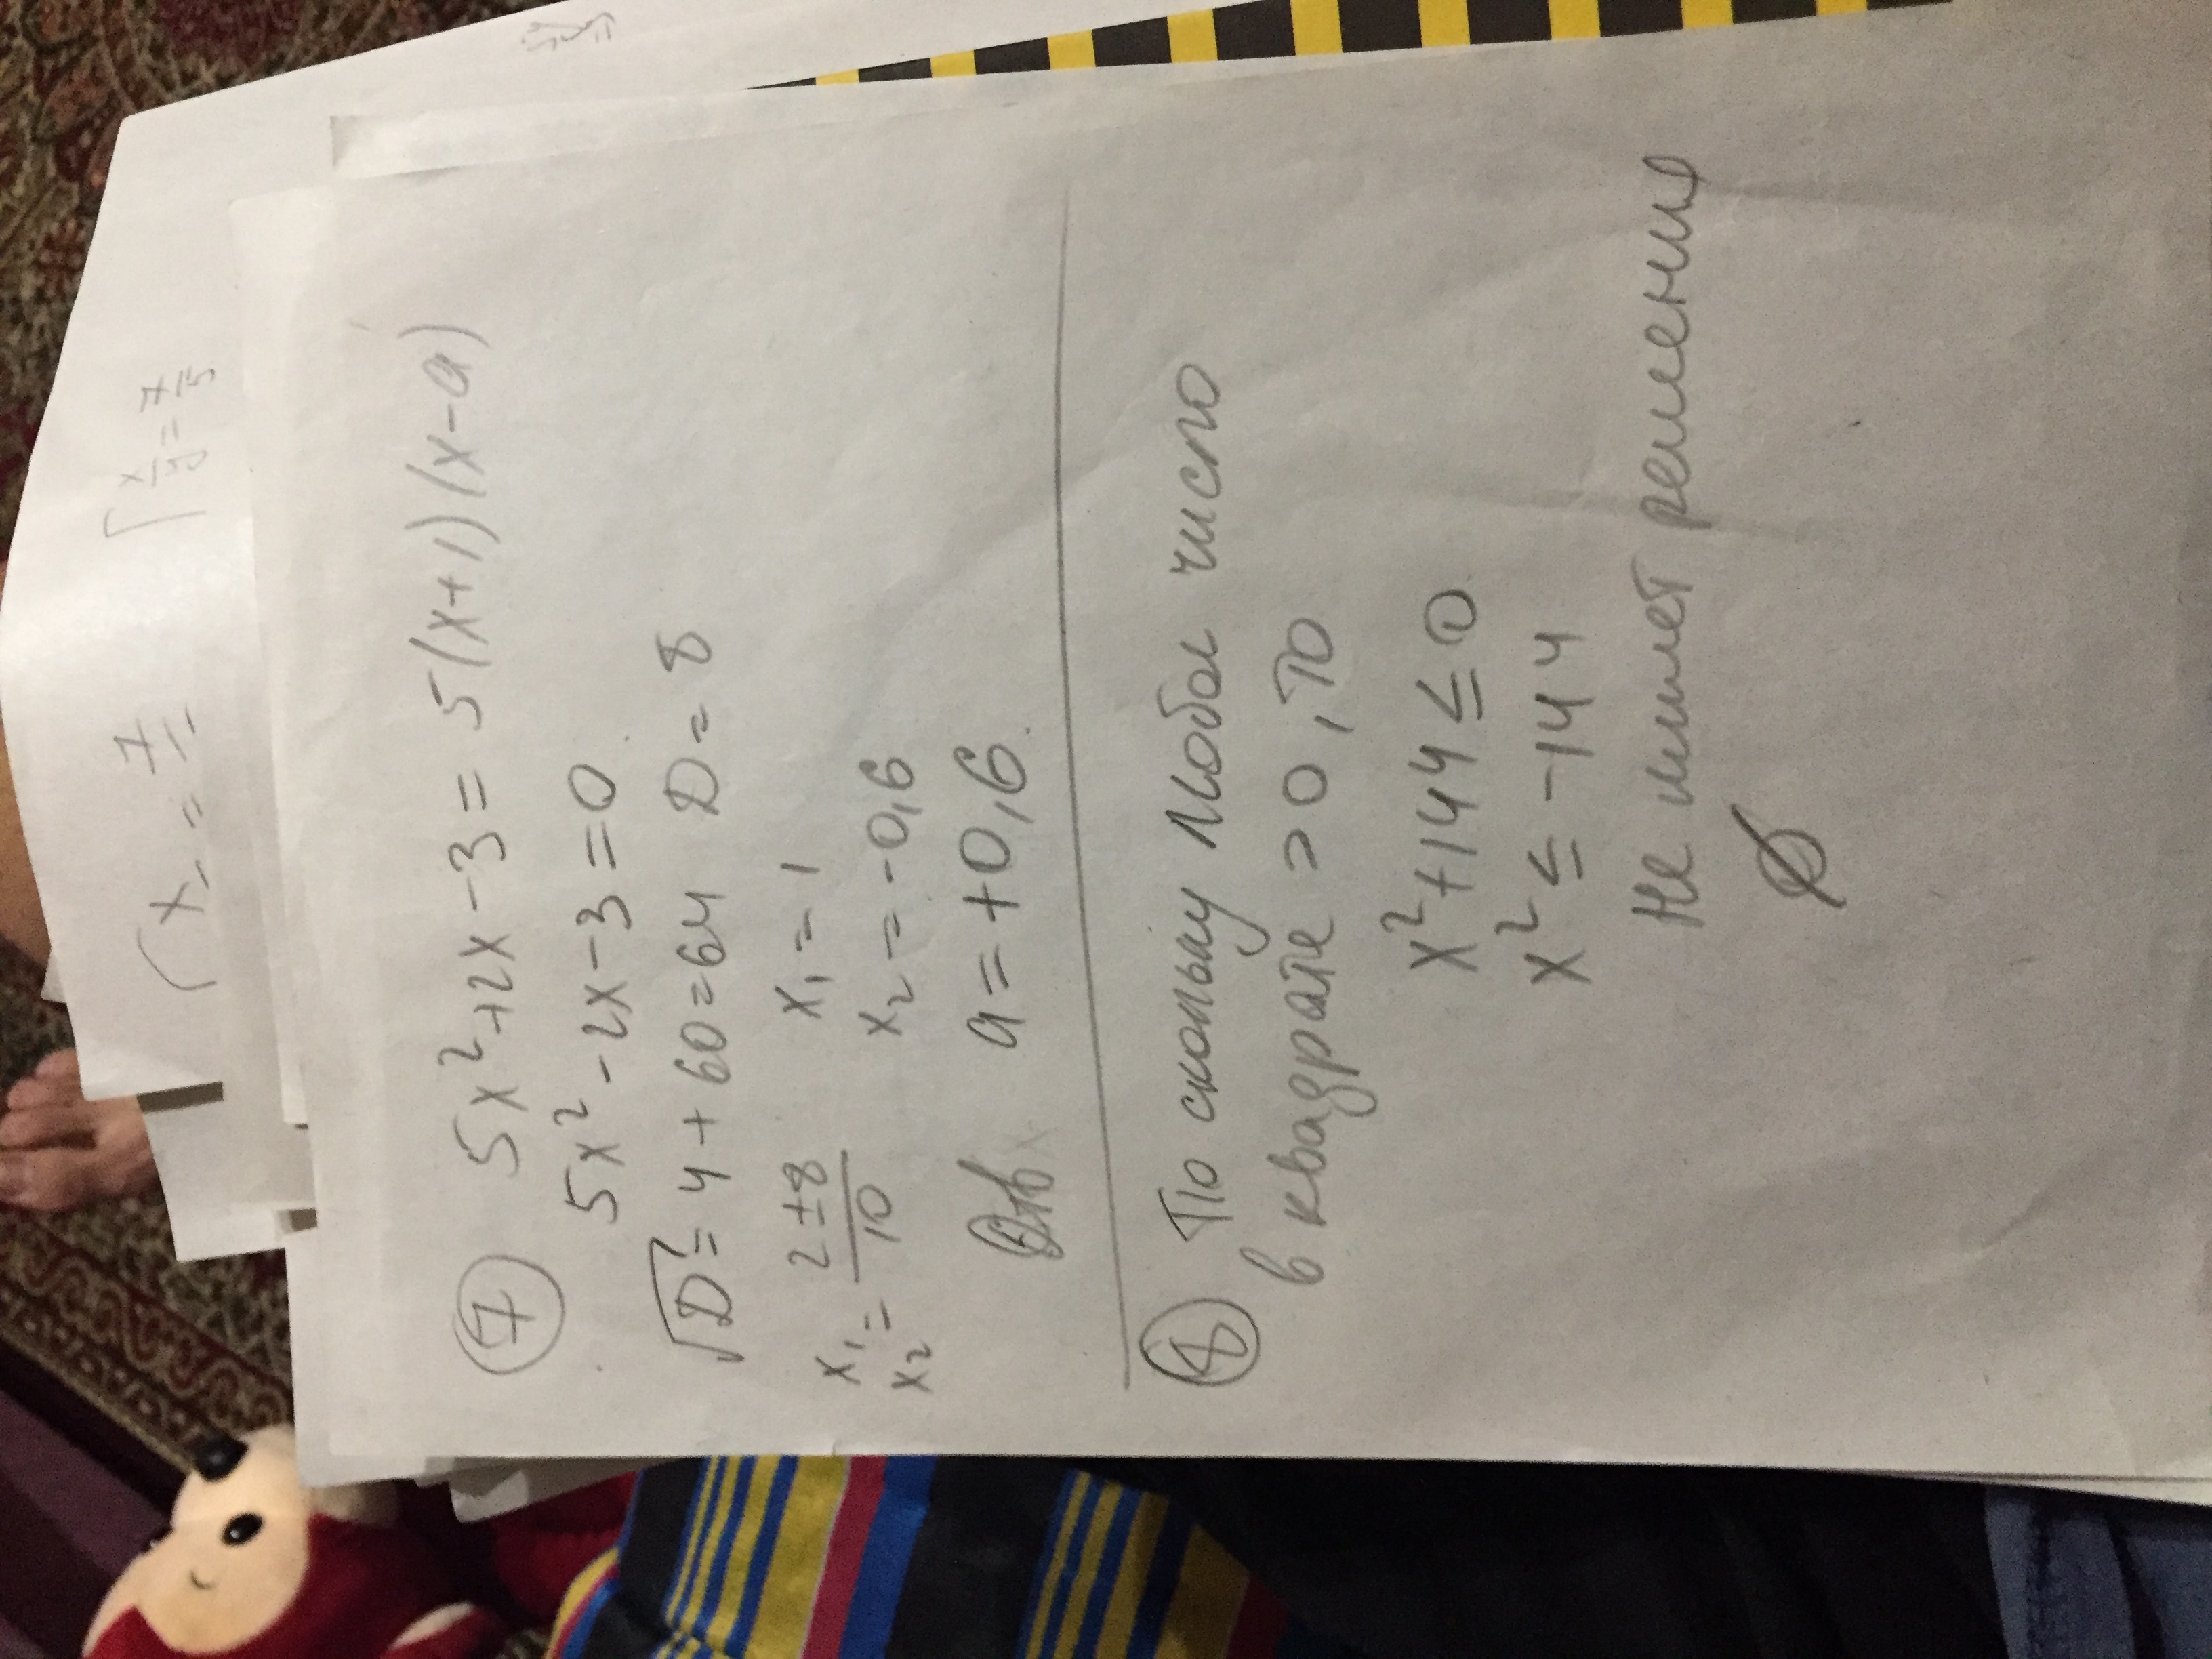 x = 7
x/y = 7/5
7
5x² + 2x - 3 = 5(x+1)(x-a)
5x² - 2x - 3 = 0
√D² = 4 + 60 = 64 D = 8
x₁ = 2 ± 8 / 10 x₁ = 1
x₂ x₂ = -0,6
Отв a = +0,6
8 По скольку любое число
в квадрате > 0, то
x² + 144 ≤ 0
x² ≤ -144
Не имеет решения
∅